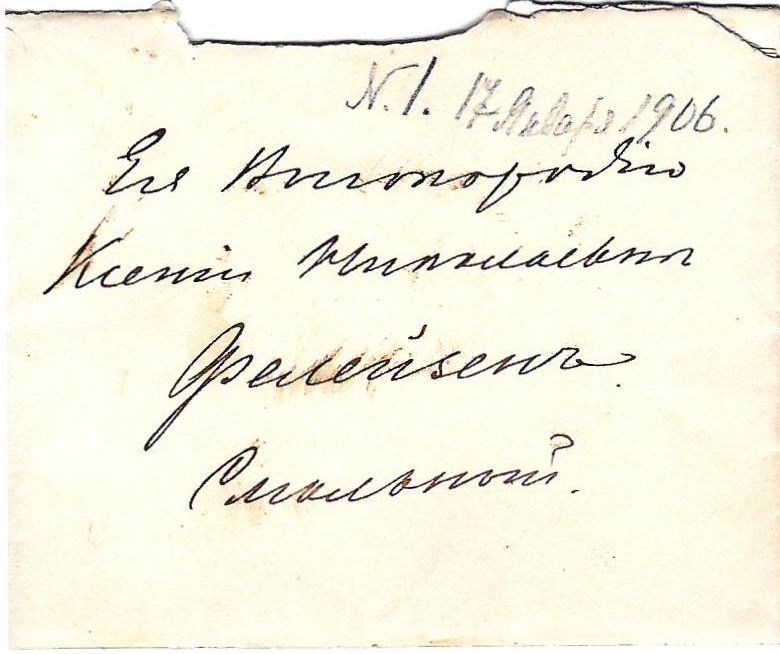 N. 1. 17 Января 1906.
Ея Высокородію
Ксеніи Николаевнѣ
Фелейзенъ.
Смольный.